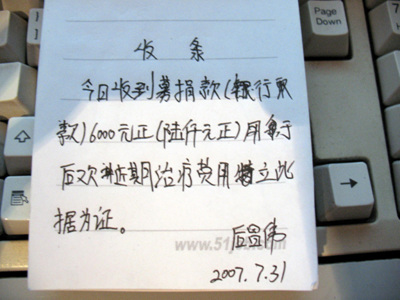 收条
今日收到募捐款(银行取
款)6000元正(陆仟元正)用于
后次 近期治疗费用特立此
据为证。
www.51
2007.7.31
Page
Down